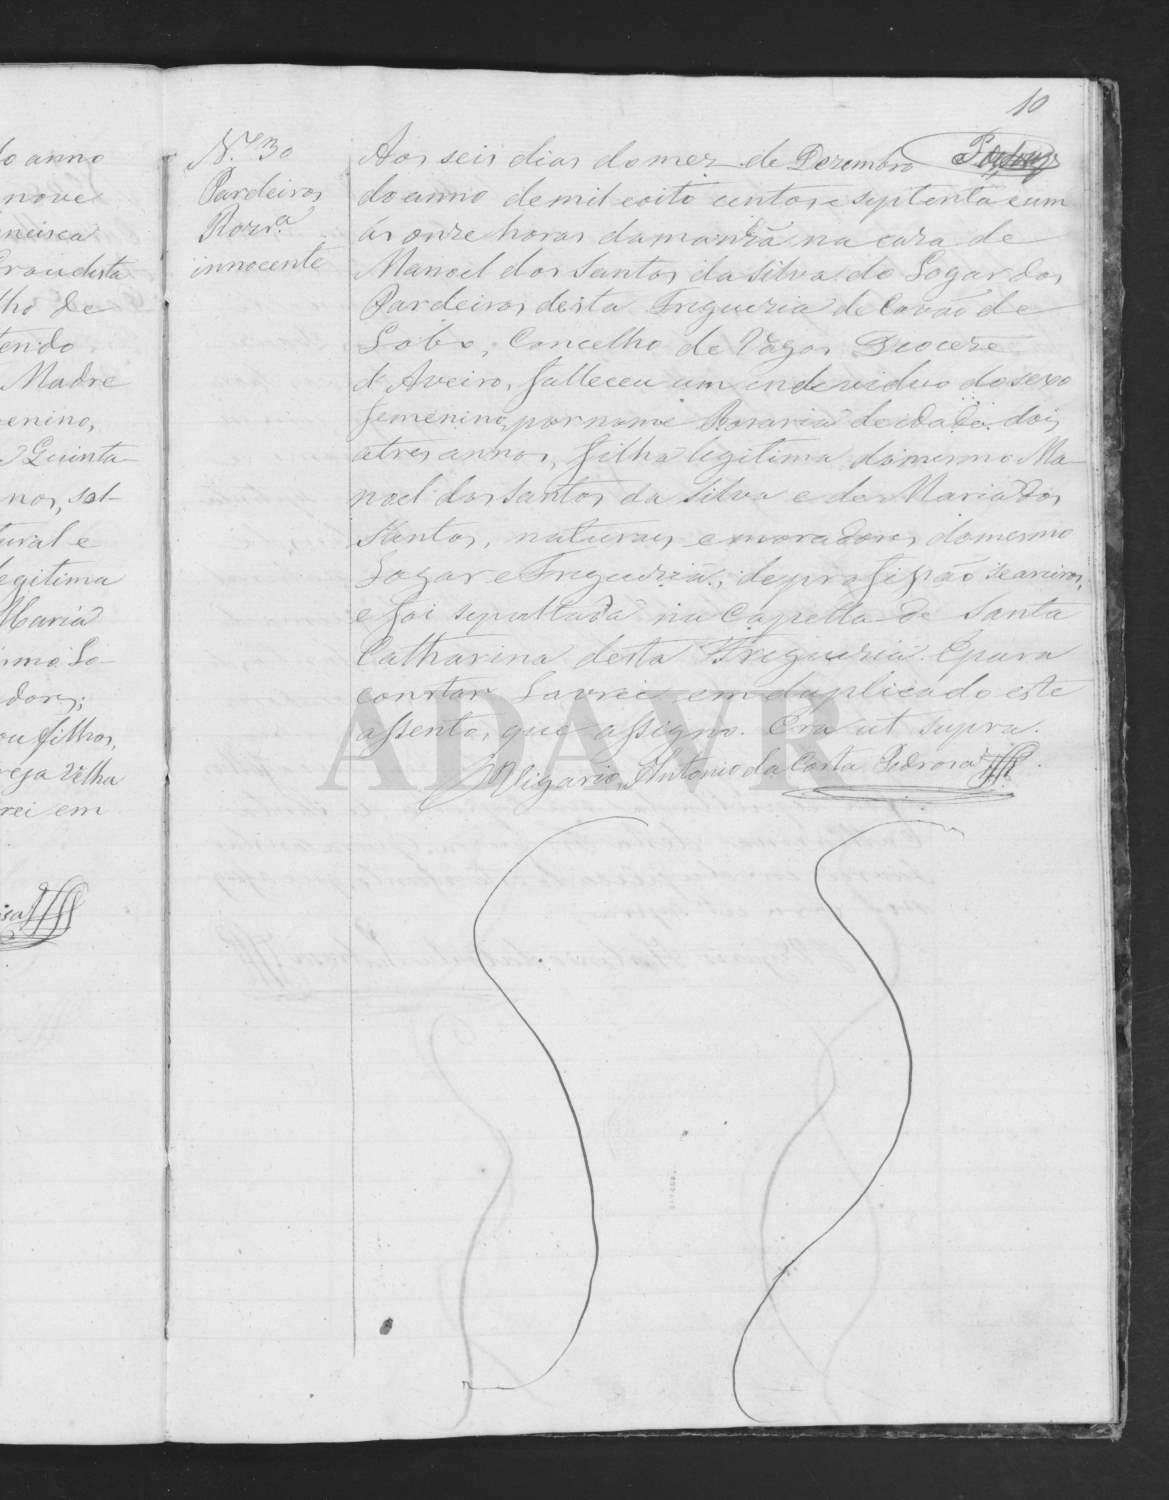 10
do anno
nove
ncisca
desta
lho de
tendo
Madre
enino,
Quinta-
nos, sol-
tural e
egitima
Maria
smo Lo-
dores;
ou filhos,
reja Velha
rei em
N.º 30
Pardeiros
Rozr.ª
innocente
Aos seis dias do mez de Dezembro
do anno de mil e oito centos e septenta e um
ás onze horas da manhã na caza de
Manoel dos Santos da Silva do Logar dos
Pardeiros desta Freguezia de Covão de
Lobo, Concelho de Vagos Dioceze
d'Aveiro, falleceu um endeviduo do sexo
femenino, por nome Rozaria de edade dois
a tres annos, filha legitima do mesmo Ma-
noel dos Santos da Silva e de Maria dos
Santos, naturaes e moradores do mesmo
Logar e Freguezia, de profissão seareiros,
e foi sepultada na Capella de Santa
Catharina desta Freguezia. E para
constar lavrei em duplicado este
assento, que assigno. Era ut supra.
O Vigario, Antonio da Costa Pedrosa
ADAVR